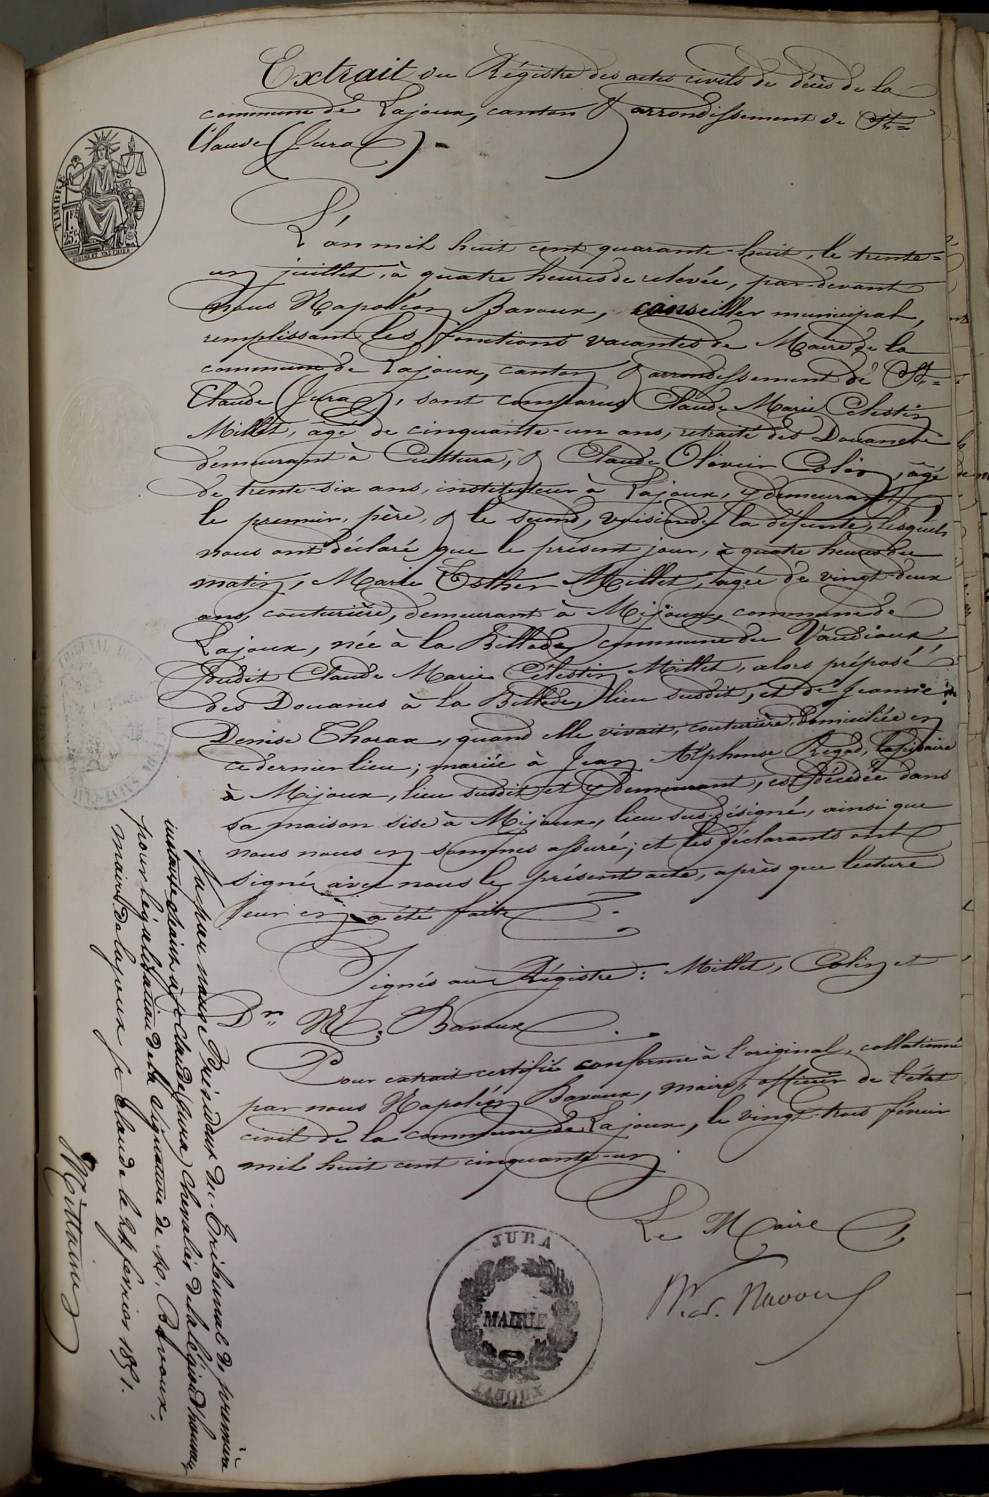 Extrait du Régistre des actes civils de décès de la
commune de Lajoux, canton & arrondissement de St=
Claude (Jura).
L'an mil huit cent quarante-huit, le trente=
un juillet, à quatre heures de relevée, par-devant
nous Napoléon Bavoux, conseiller municipal,
remplissant les fonctions vacantes de Maire de la
commune de Lajoux, canton & arrondissement de St=
Claude (Jura), sont comparus Claude Marie Célestin
Millet, agé de cinquante-un ans, retraité des Douanes
demeurant à Cuttura, & Claude Olivier Colin, âgé
de trente-six ans, instituteur à Lajoux, y demeurant,
le premier, père, & le second, voisin de la défunte, lesquels
nous ont déclaré que le présent jour, à quatre heures du
matin, Marie Esther Millet, agée de vingt-deux
ans, couturière, demeurant à Mijoux, commune de
Lajoux, née à la Billode, commune du Vaudioux
dudit Claude Marie Célestin Millet, alors préposé
des Douanes à la Billode, lieu susdit, et de Jeanne
Denise Thorax, quand elle vivait, couturière, domiciliée en
ce dernier lieu; mariée à Jean Alphonse Regad, lapidaire
à Mijoux, lieu susdit et y demeurant, est décédée dans
sa maison sise à Mijoux, lieu sus-désigné, ainsi que
nous nous en sommes assuré; et les déclarants ont
signé avec nous le présent acte, après que lecture
leur en a été faite.
Signés au Régistre: Millet, Colin et
N. Bavoux.
Pour extrait certifié conforme à l'original, collationné
par nous Napoléon Bavoux, maire, officier de l'état
civil de la commune de Lajoux, le vingt-trois février
mil huit cent cinquante-un.
Le Maire
JURA
MAIRIE
LAJOUX
TIMBRE
Vu par nous Président du Tribunal de première
instance séant à St Claude (Jura) chevalier de la légion d'honneur,
pour légalisation de la signature de M. Bavoux,
maire de Lajoux. St Claude le 24 février 1851.